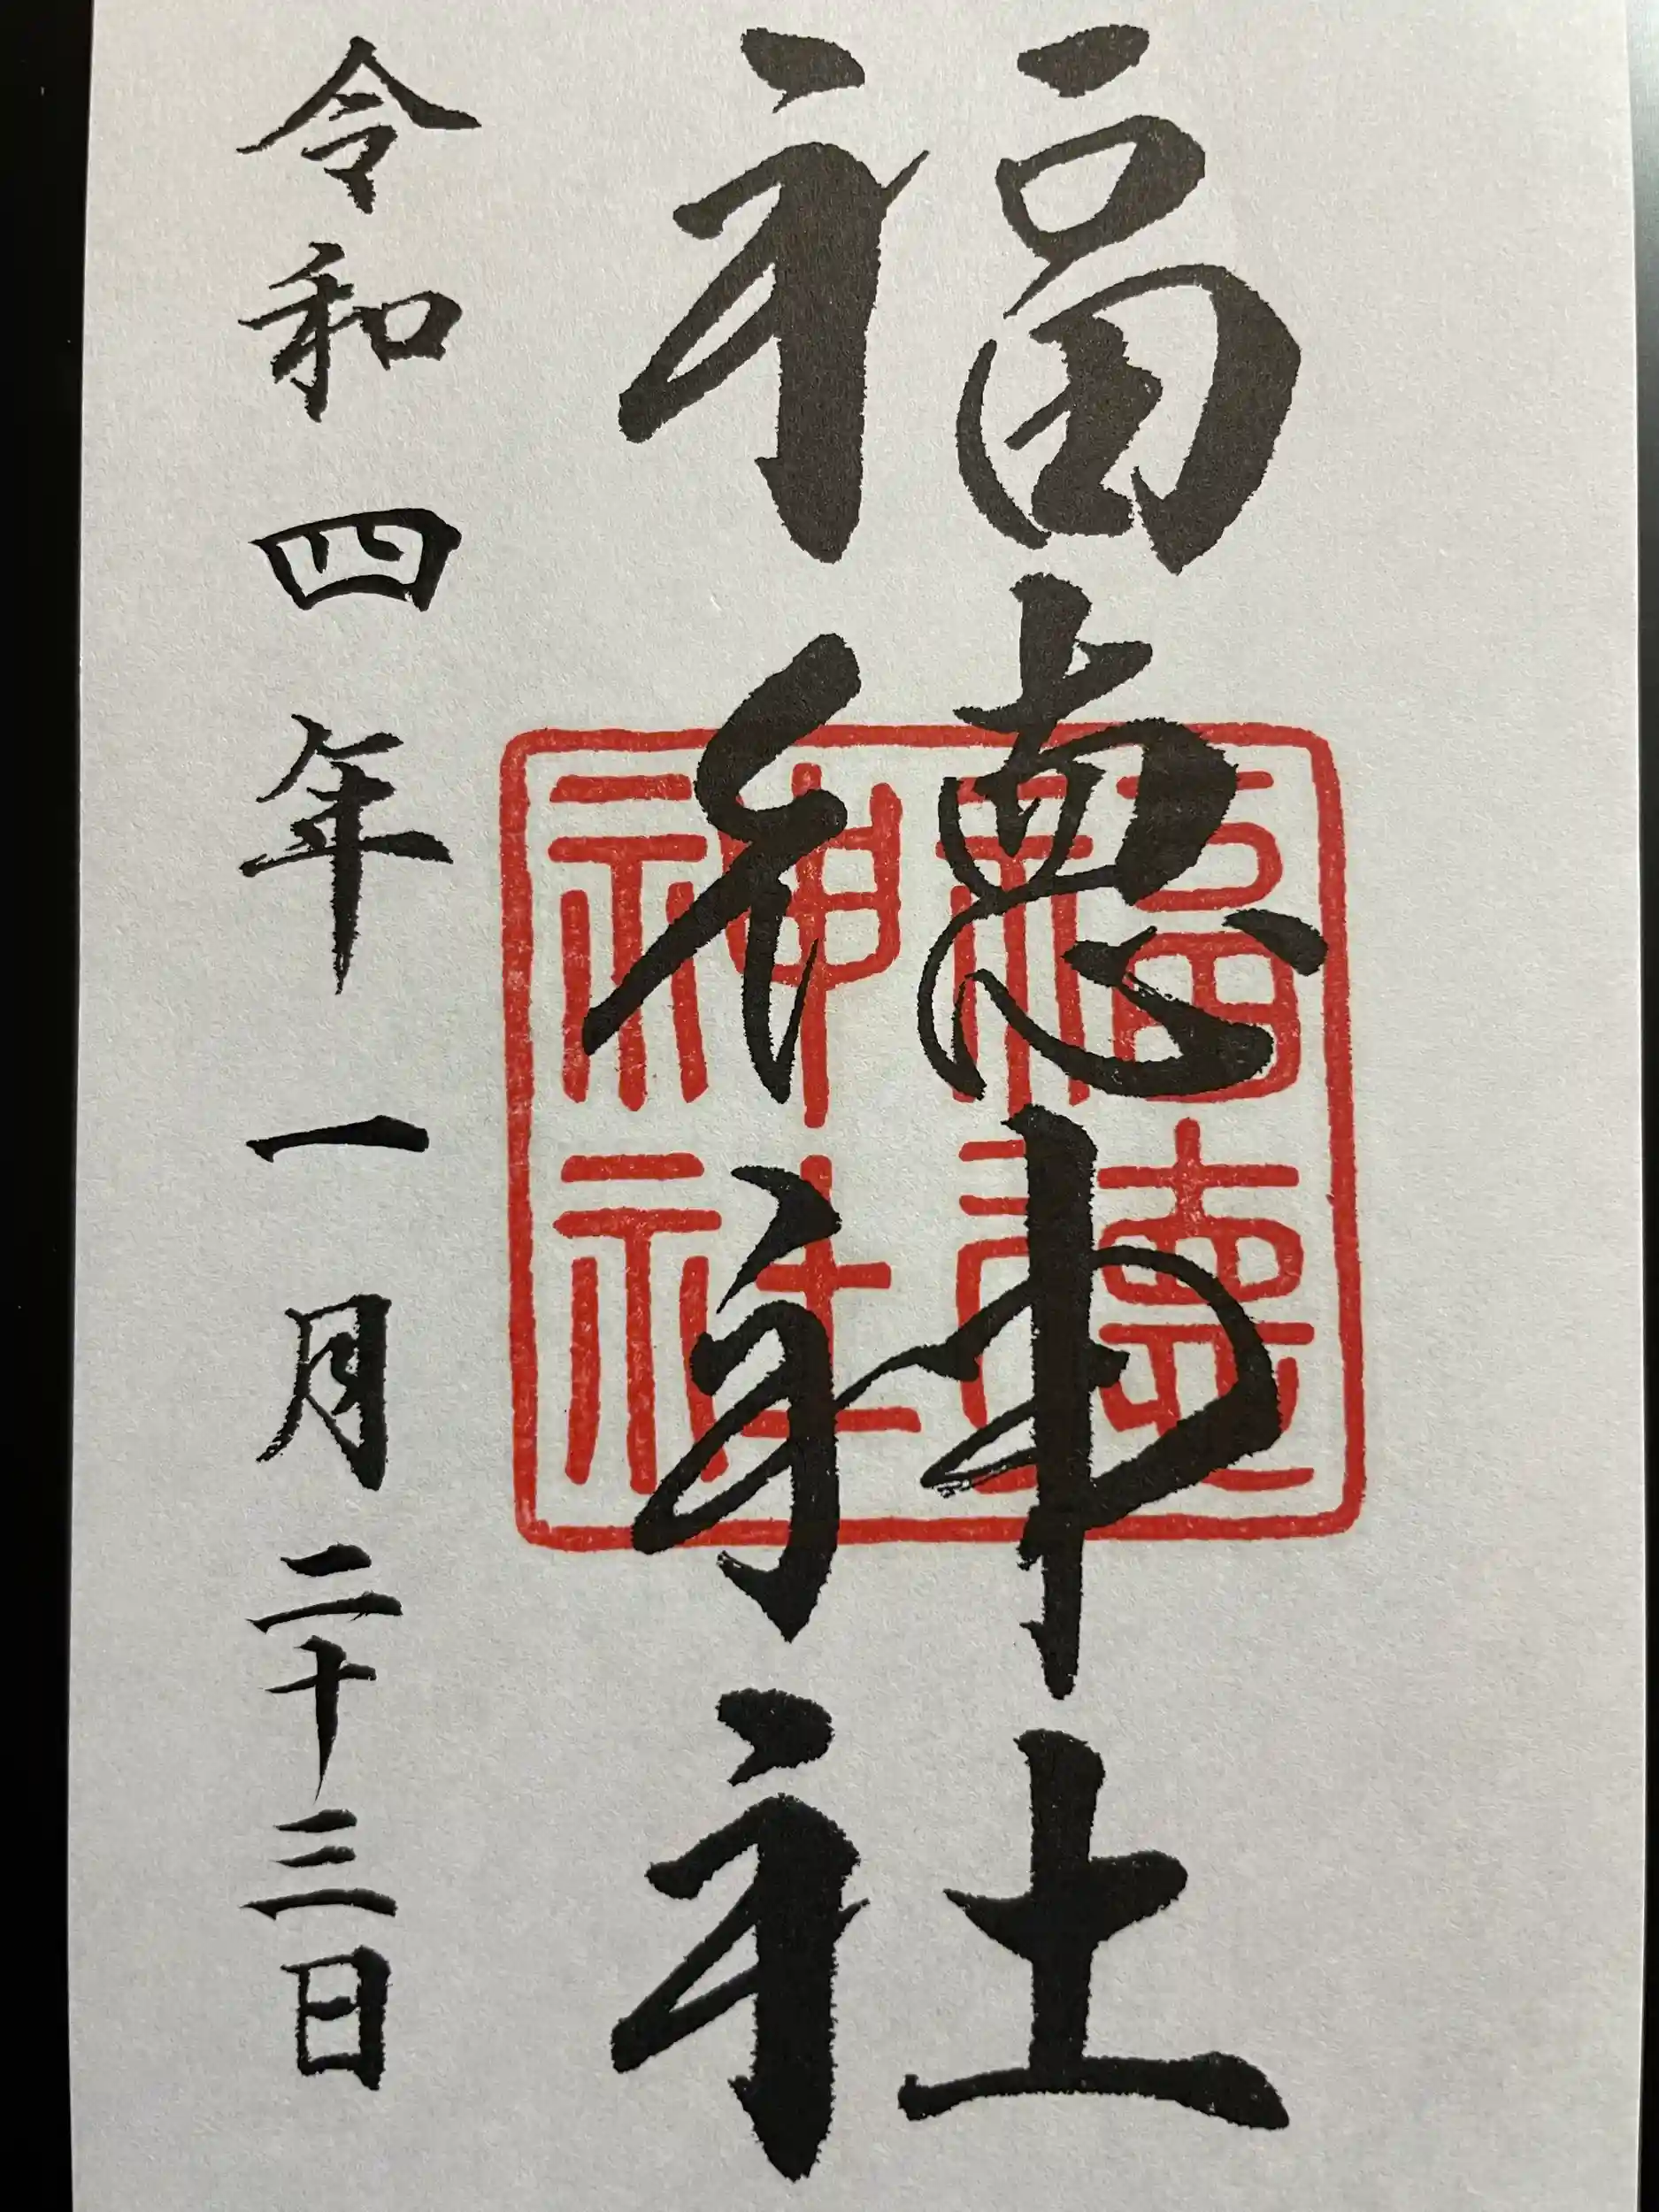 福徳神社
福徳
神社
令和四年一月二十三日